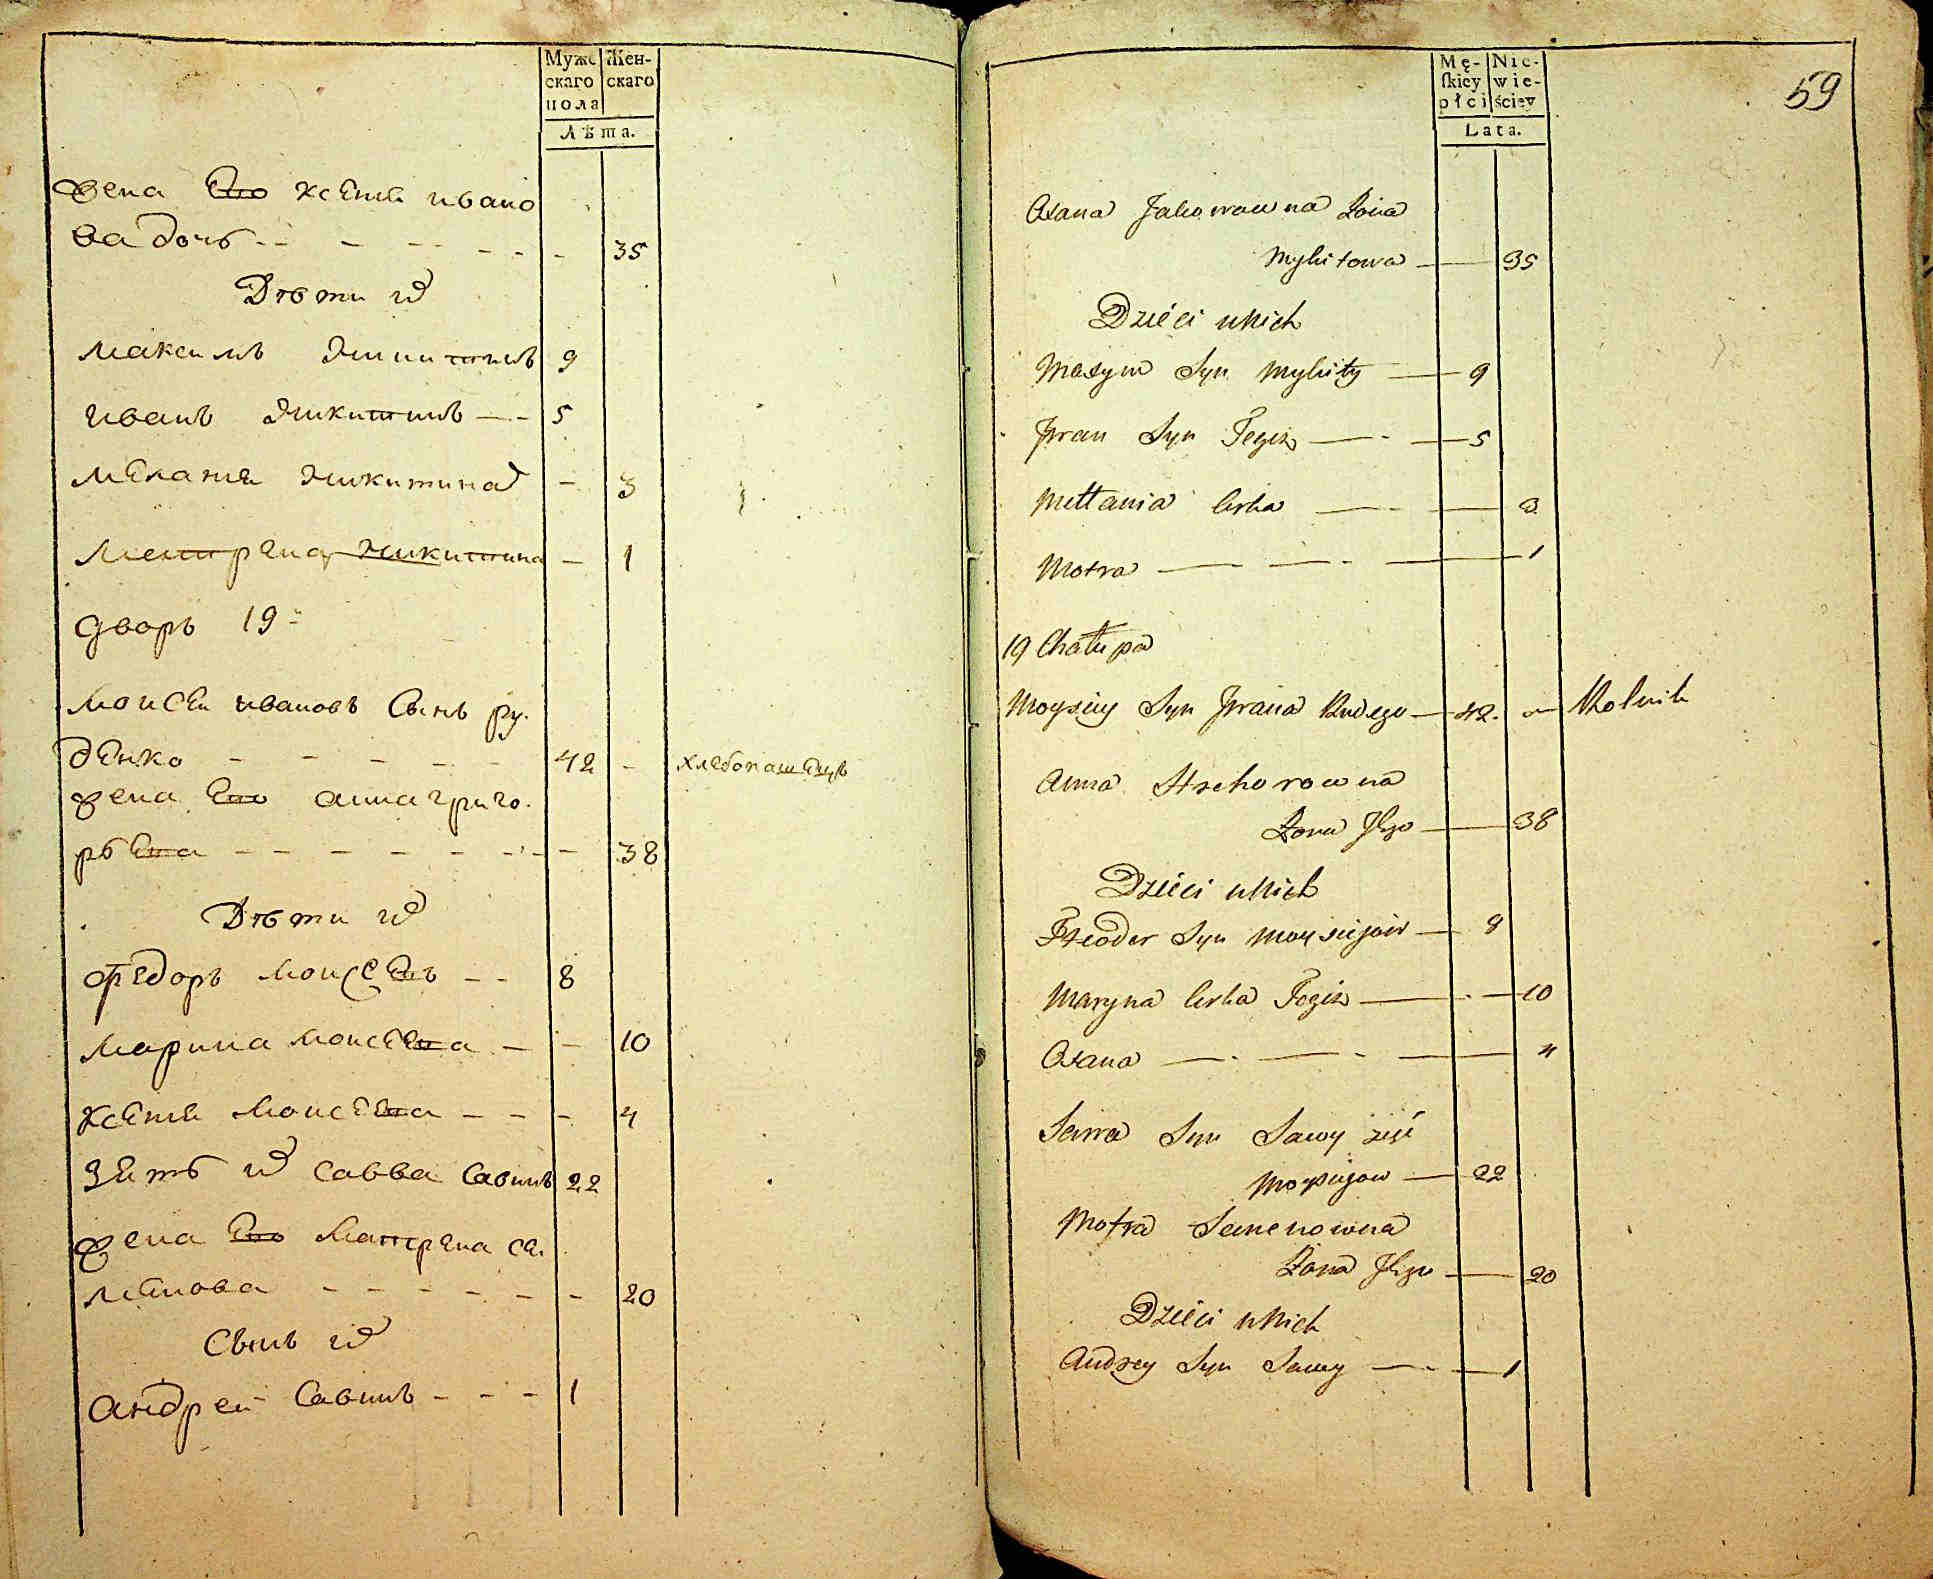 Муже Жен-
скаго скаго
пола
Лѣта.
жена Его ксения ивано
ва дочь - - - - - - - 35
Дѣти их
максимъ никитинъ 9
иванъ никитинъ - - 5
мелания никитина - 3
матрена никитина - 1
дворъ 19-
моисей ивановъ сынъ ру-
денко - - - - - - 42 - хлебопашецъ
жена Его анна григо-
рьева - - - - - - - - 38
Дѣти их
федоръ моисеевъ - - 8
марина моисеева - - 10
ксения моисеева - - - 4
зять их савва савинъ 22
жена Его матрена се-
менова - - - - - - - 20
Сынъ их
андреи савинъ - - - 1
59
Mę- Nie-
ſkiey wie-
płci ściey
Lata.
Oxana Jakowowna Żona
Mykitowa — 35
Dzieci u Nich
Maxym Syn Mykity — 9
Jwan Syn Tegiż — - — 5
Mełłania Corka — - — 3
Motra — — - — 1
19 Chałupa
Moysiey Syn Jwana Rudego — 42. — Rolnik
Anna Hrehorowna
Żona Jego — 38
Dzieci u Nich
Fteodor Syn Moysiejow — 8
Maryna Corka Tegiż — - — 10
Oxana — - — - — 4
Sawa Syn Sawy zięć
Moysiejow — 22
Motra Semenowna
Żona Jego — 20
Dzieci u Nich
Andrey Syn Sawy — - — 1